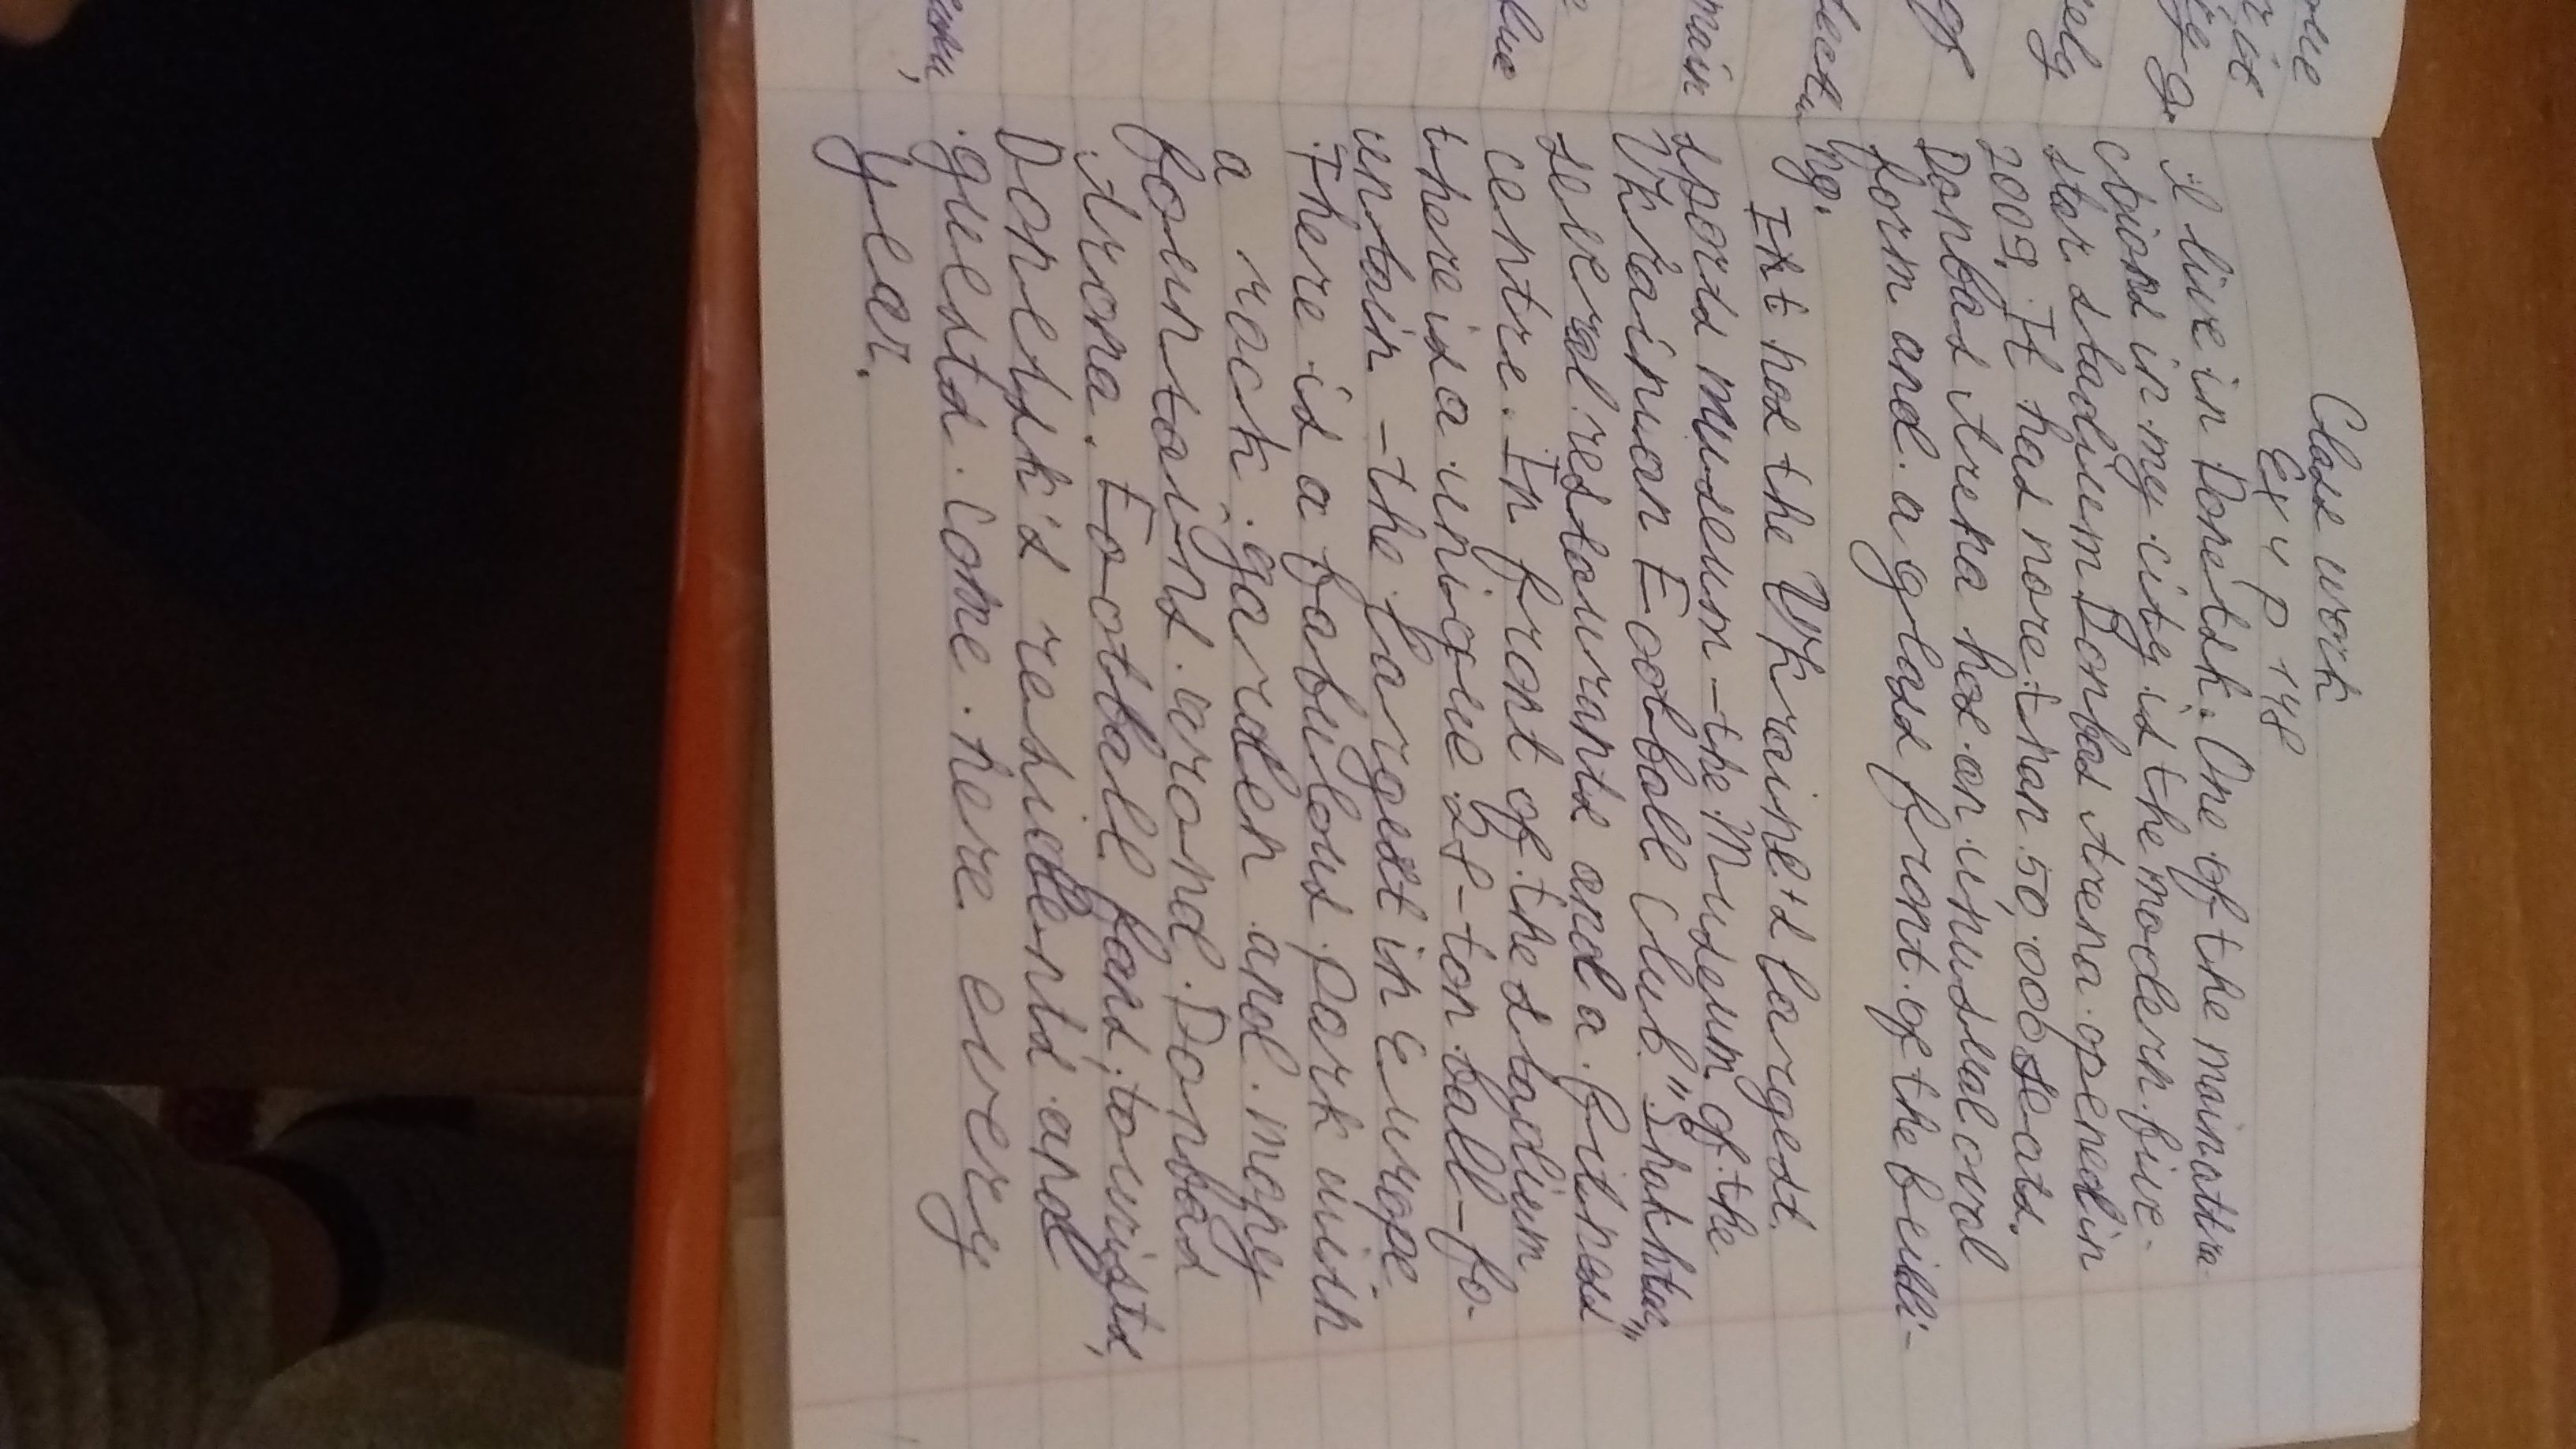 Class work
Ex 4 p 148
I live in Donetsk. One of the main attra
ctions in my city is the modern five-
star stadium Donbas Arena opened in
2009. It has more than 50.000 seats.
Donbas Arena has an unusual oval
form and a glass front of the buildi-
ng.
It has the Ukraine's largest
sports museum - the Museum of the
Ukrainian Football Club "Shakhtar"
several restaurants and a fitness
centre. In front of the stadium
there is a unique 28-ton ball-fo-
untain - the largest in Europe.
There is a fabulous park with
a rock garden and many
fountains around Donbas
Arena. Football fans, tourists,
Donetsk's residents and
guests come here every
year.